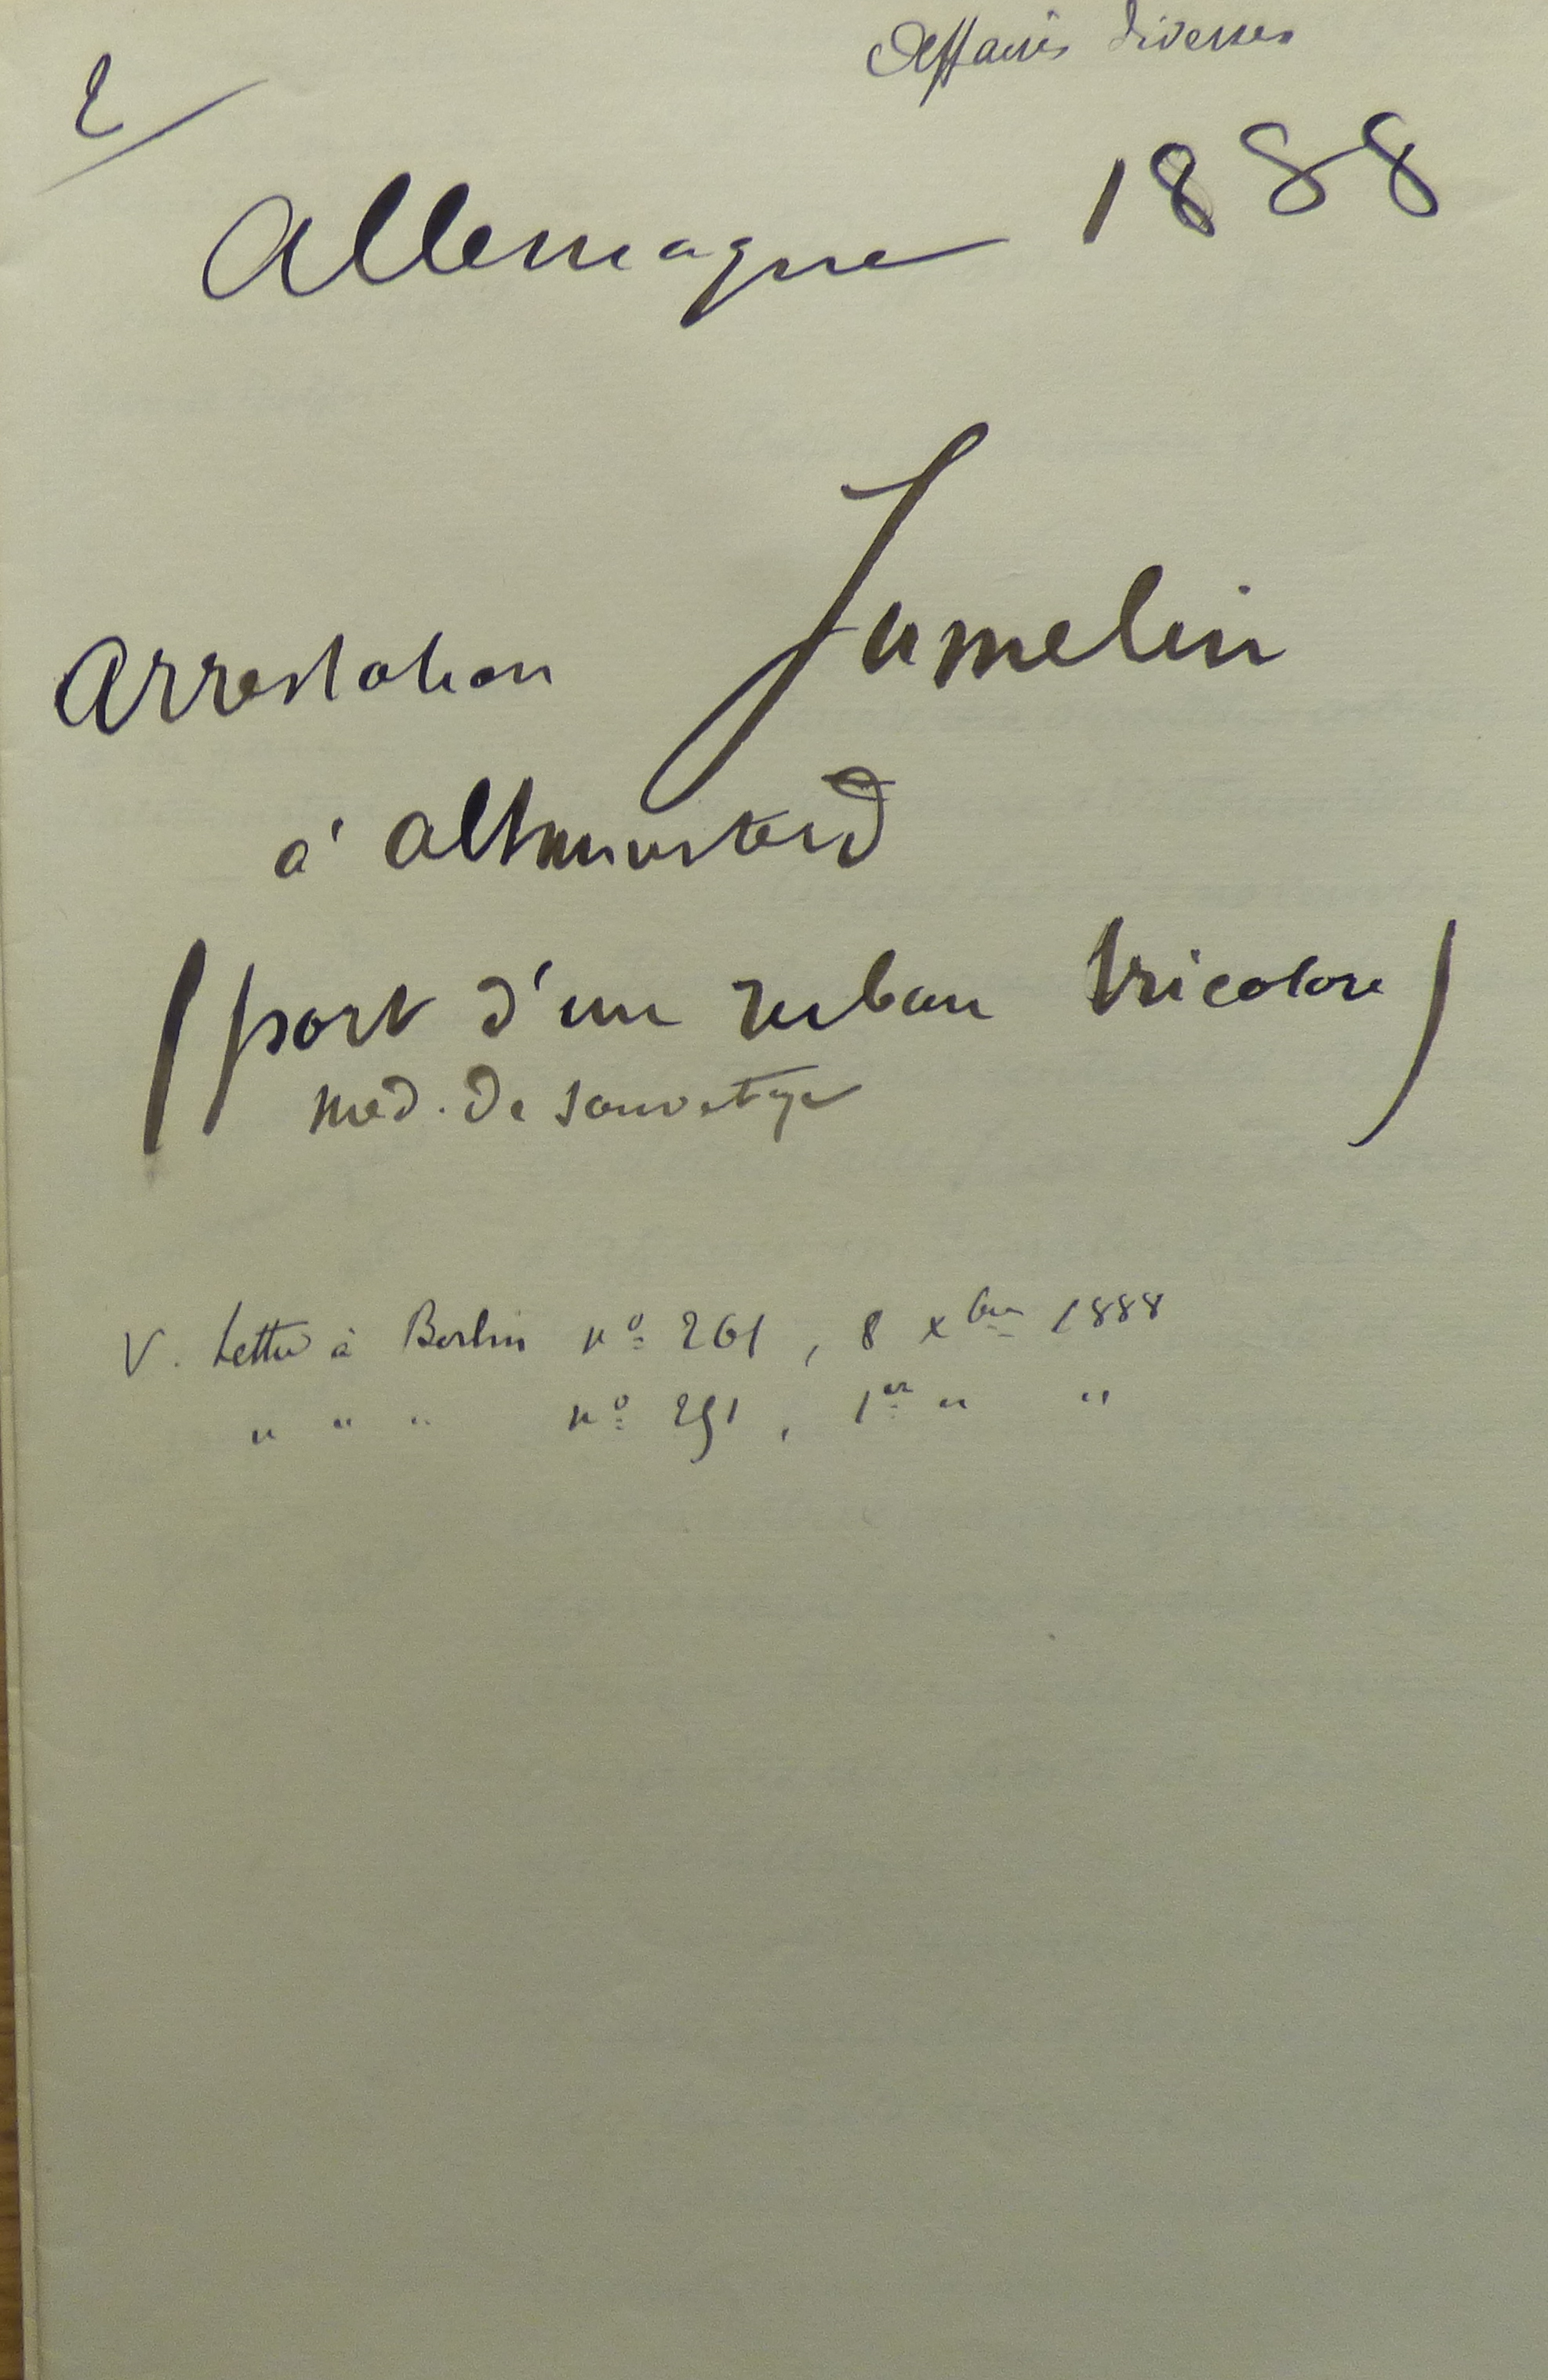 Affaires diverses
2/
Allemagne 1888
Arrestation Jumelin
à altmunsterd
(port d'un ruban tricolore)
med. de sauvetage
V. Lettre à Berlin nº 261, 8 xbre 1888
" " " nº 251, 1er " "